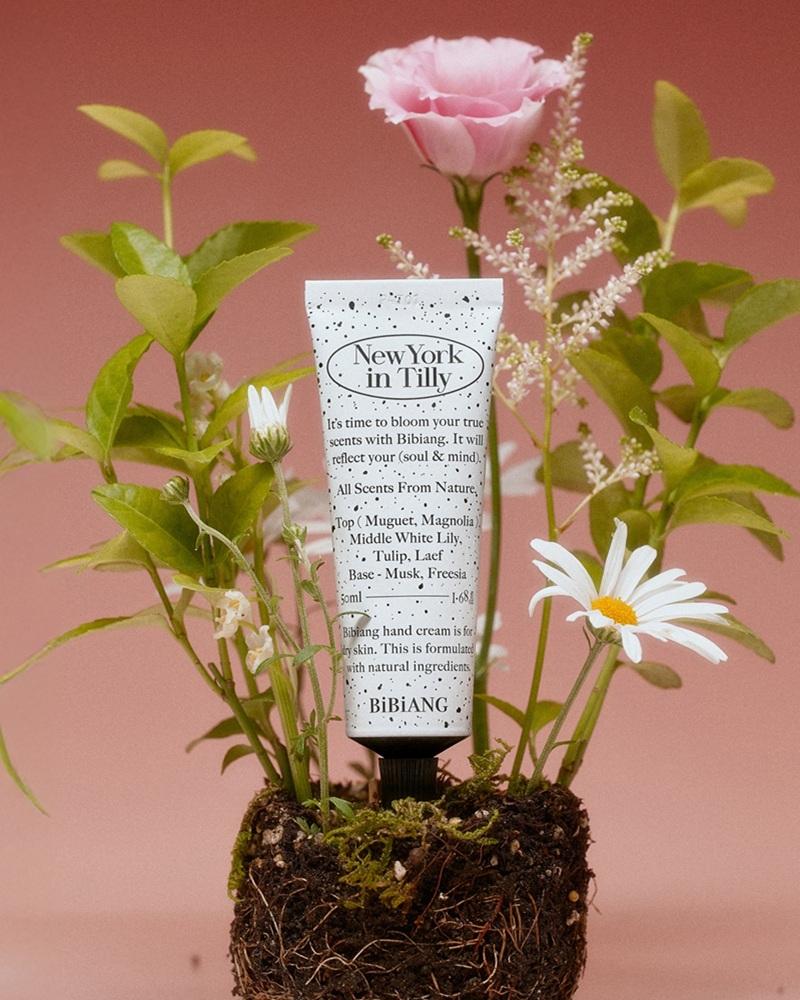 New York
in Tilly
It's time to bloom your true
scents with Bibiang. It will
reflect your (soul & mind).
All Scents From Nature,
Top ( Muguet, Magnolia )
Middle White Lily,
Tulip, Laef
Base - Musk, Freesia
50ml 1.68
Bibiang hand cream is for
dry skin. This is formulated
with natural ingredients.
BiBiANG